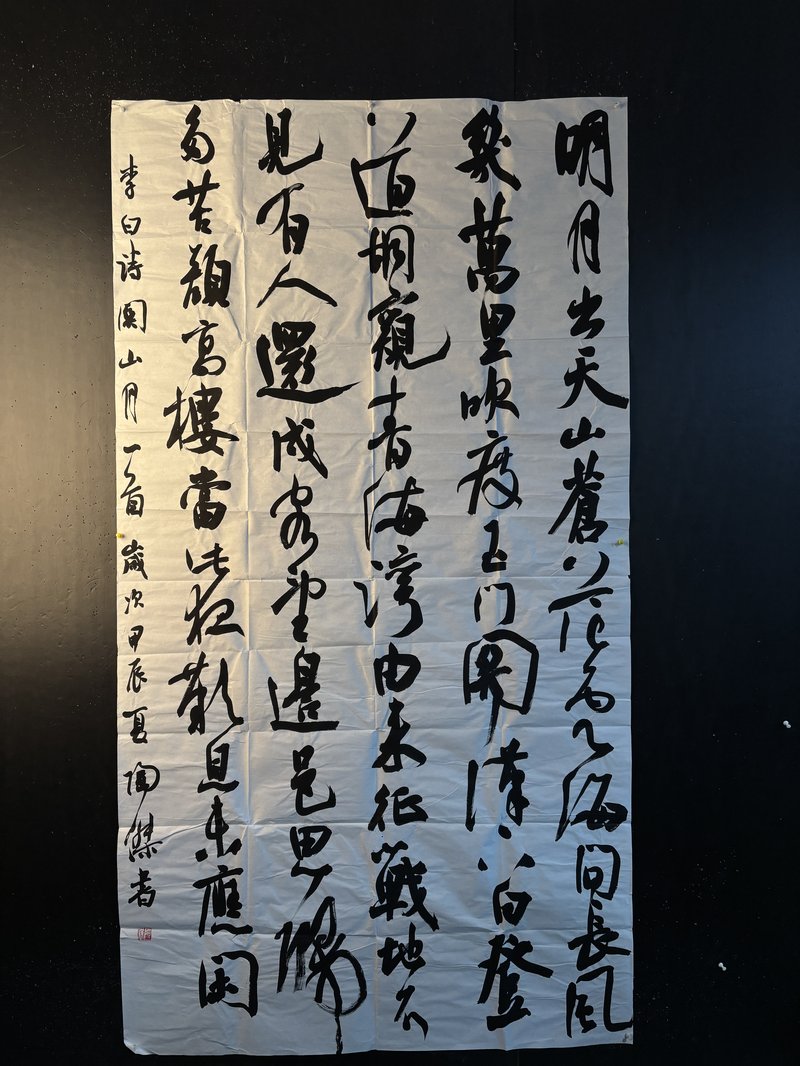 明月出天山蒼茫雲海間長風
幾萬里吹度玉门關漢下白登
道胡窺青海灣由来征戰地不
見有人還戍客望邊邑思歸
多苦顏高樓當此夜歎息未應閑
李白詩關山月一首歲次甲辰夏陶傑書